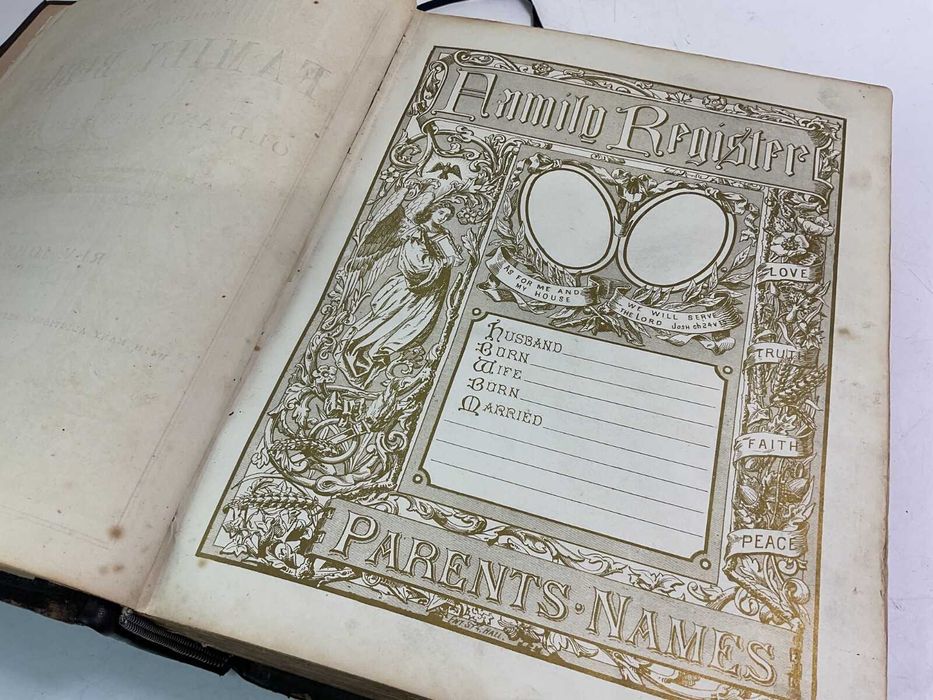 Family Register
AS FOR ME AND
MY HOUSE
WE WILL SERVE
THE LORD Josh ch 24 v 15
LOVE
TRUTH
FAITH
PEACE
HUSBAND
BORN
WIFE
BORN
MARRIED
PARENTS · NAMES